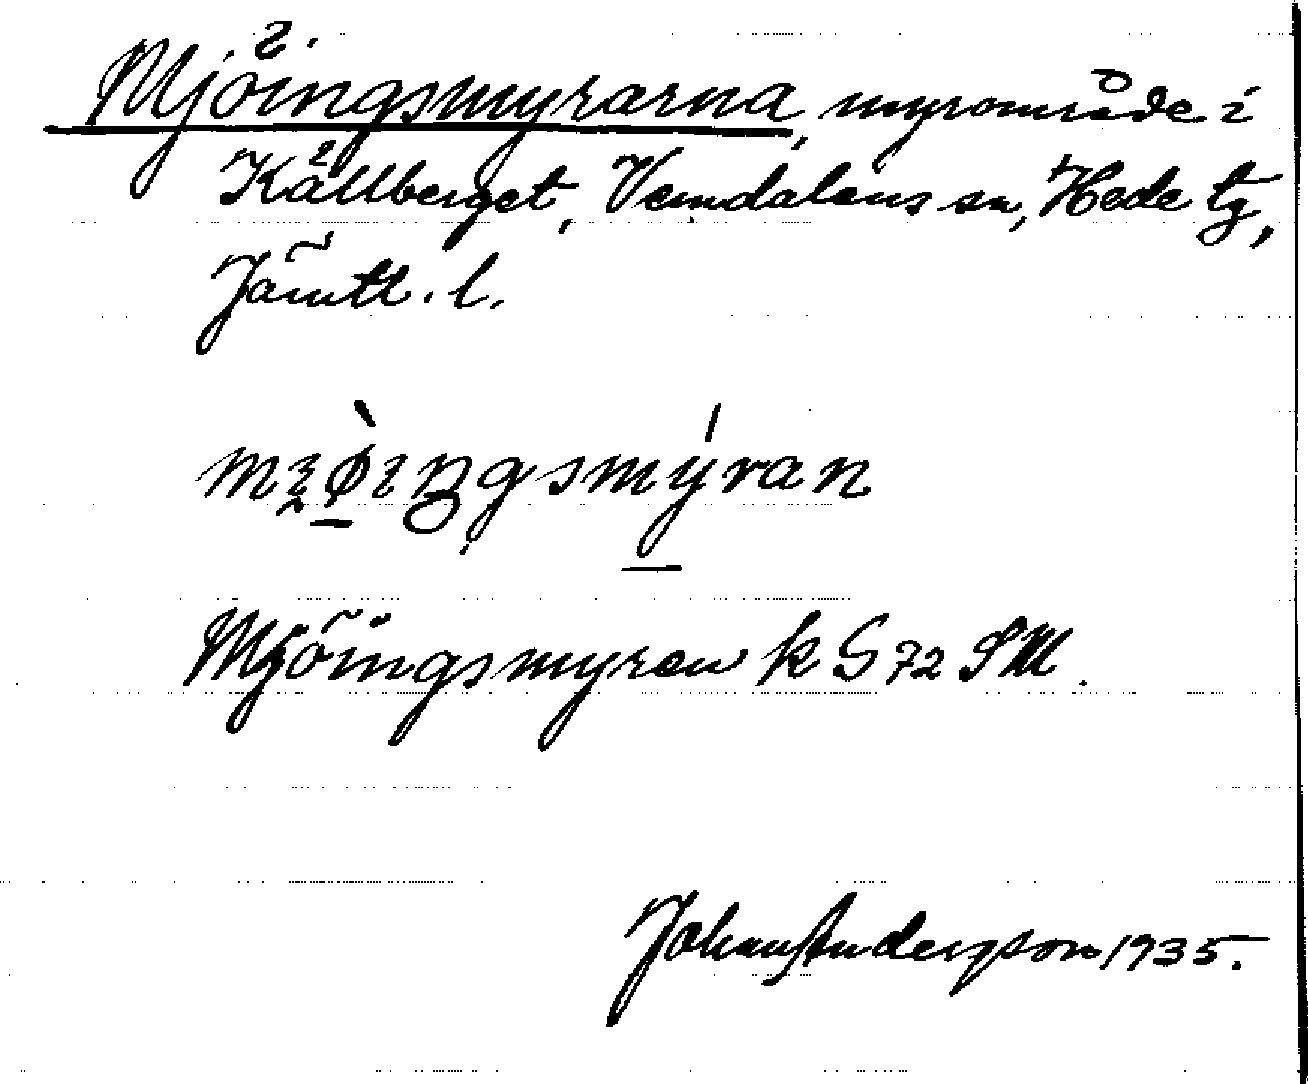 Mjöingsmyrarna, myrområde i
Källberget, Vemdalens sn, Hede tg,
Jämtl. l.
Mjöingsmyren k S 72 SM.
Johan Anderzson 1935.